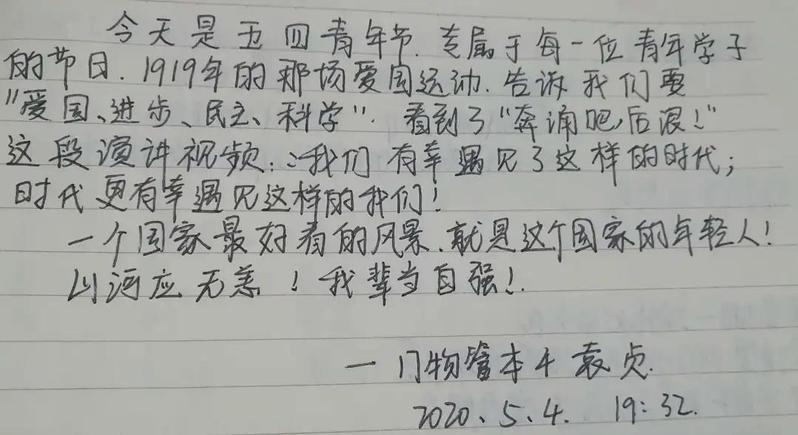 今天是五四青年节.专属于每一位青年学子
的节日.1919年的那场爱国运动.告诉我们要
"爱国、进步、民主、科学".看到了"奔涌吧,后浪!"
这段演讲视频:我们有幸遇见了这样的时代;
时代更有幸遇见这样的我们!
一个国家最好看的风景.就是这个国家的年轻人!
山河应无恙!我辈当自强!
一门物管本4 袁贞.
2020.5.4. 19:32.